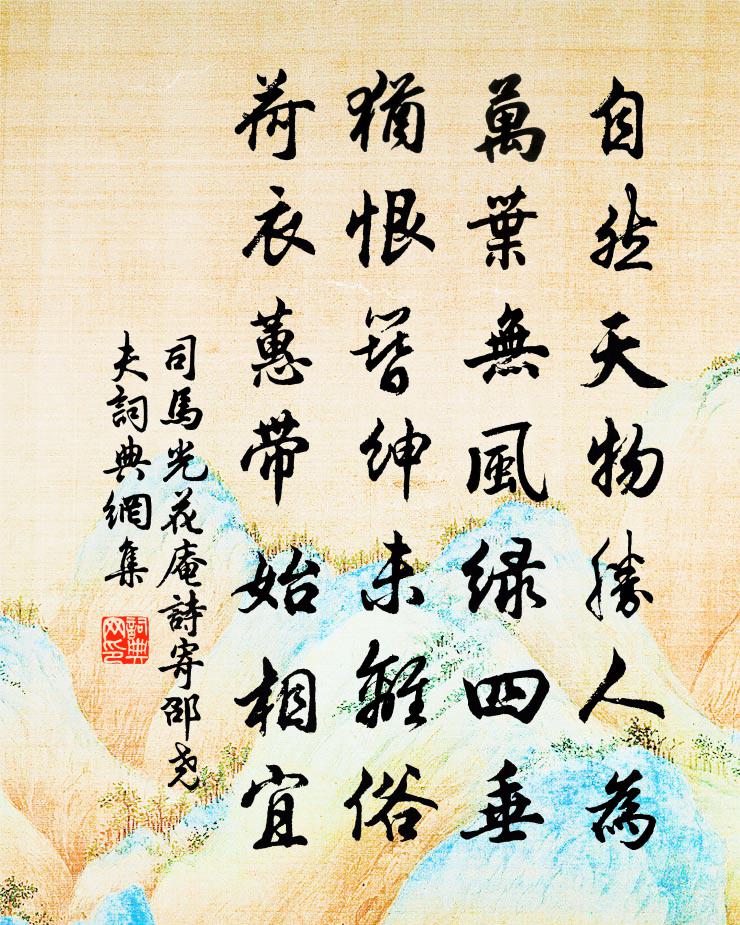 自然天物勝人為
萬葉無風綠四垂
猶恨簪紳未離俗
荷衣蕙帶始相宜
司馬光花庵詩寄邵堯
夫詞典網集
詞典網印